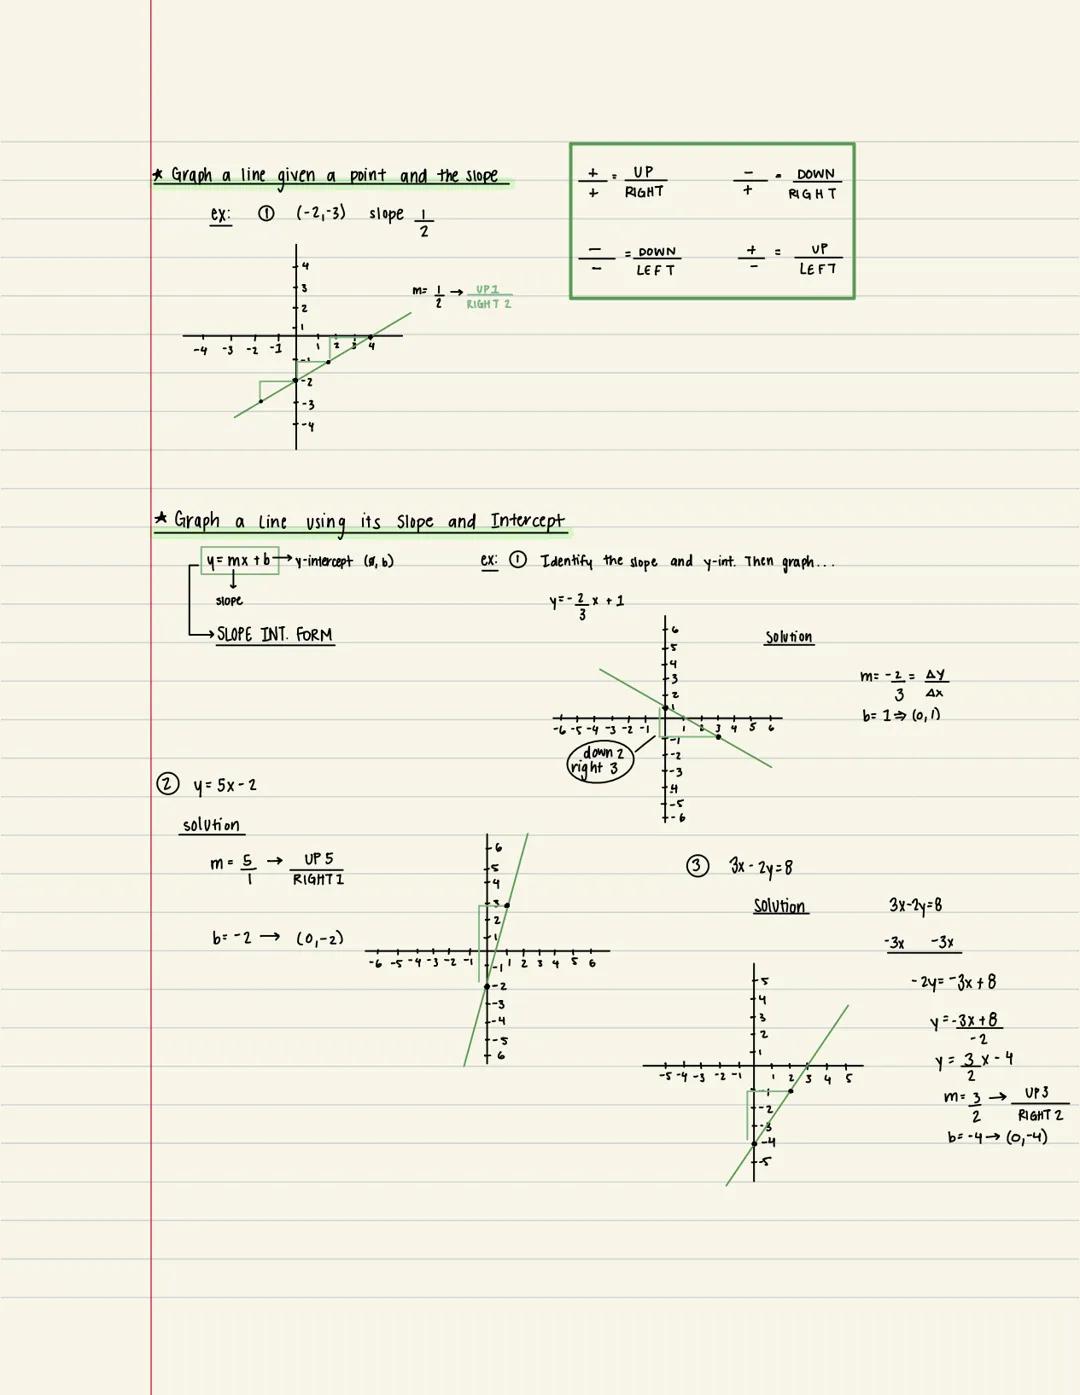 ★ Graph a line given a point and the slope
ex: ① (-2,-3) slope 1/2
+/+ = UP/RIGHT
-/+ = DOWN/RIGHT
-/- = DOWN/LEFT
+/- = UP/LEFT
m= 1/2 → UP 1/RIGHT 2
4
3
2
1
-4 -3 -2 -1 1 2 3 4
-1
-2
-3
-4
★ Graph a Line using its Slope and Intercept
y = mx + b → y-intercept (0, b)
slope
SLOPE INT. FORM
ex: ① Identify the slope and y-int. Then graph...
y = -2/3 x + 1
Solution
m= -2/3 = Δy/Δx
b= 1 ⇒ (0,1)
6
5
4
3
2
1
-6 -5 -4 -3 -2 -1 1 2 3 4 5 6
-1
-2
-3
-4
-5
-6
down 2
right 3
② y= 5x - 2
solution
m = 5/1 → UP 5/RIGHT 1
b= -2 → (0,-2)
6
5
4
3
2
1
-6 -5 -4 -3 -2 -1 1 2 3 4 5 6
-1
-2
-3
-4
-5
6
③ 3x - 2y = 8
Solution
3x-2y=8
-3x -3x
-2y= -3x + 8
y = -3x + 8/-2
y = 3/2 x - 4
m= 3/2 → UP 3/RIGHT 2
b= -4 → (0,-4)
5
4
3
2
1
-5 -4 -3 -2 -1 1 2 3 4 5
-1
-2
-3
-4
-5